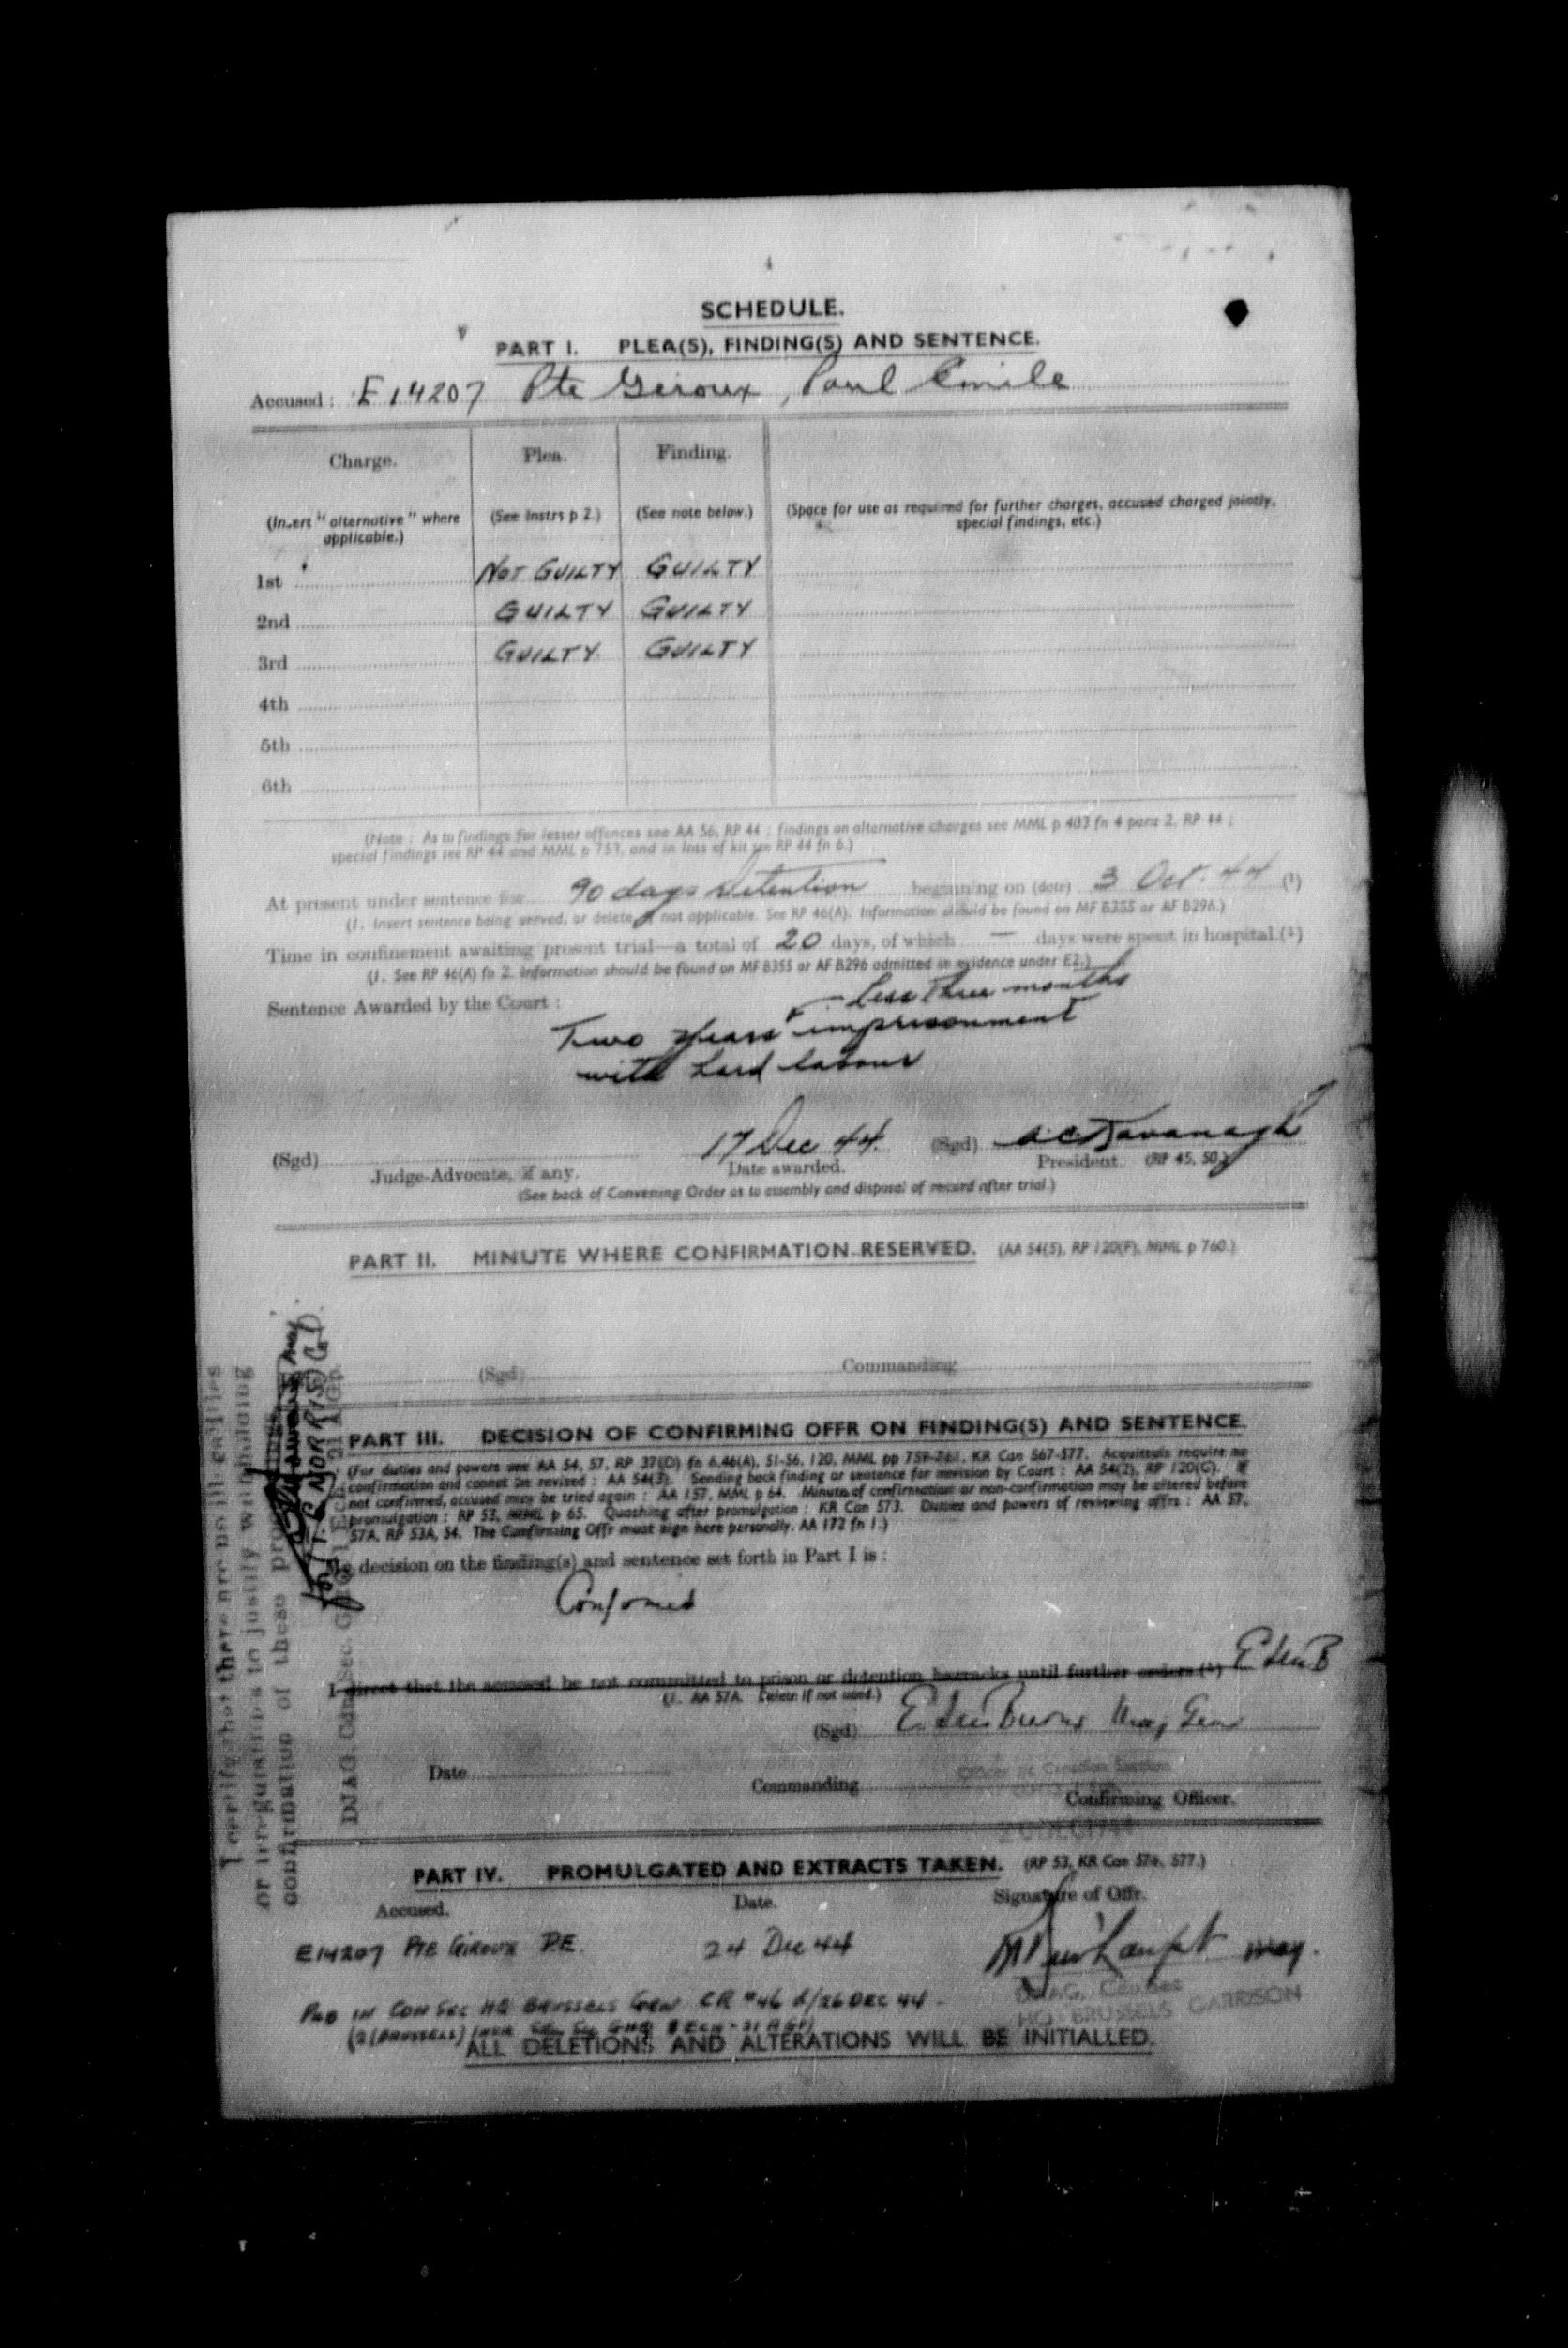 4
SCHEDULE.
PART I. PLEA(S), FINDING(S) AND SENTENCE.
Accused: E14207 Pte Giroux, Paul Emile
Charge. Plea. Finding.
(Insert "alternative" where applicable.) (See Instrs p 2.) (See note below.) (Space for use as required for further charges, accused charged jointly, special findings, etc.)
1st NOT GUILTY GUILTY
2nd GUILTY GUILTY
3rd GUILTY GUILTY
4th
5th
6th
(Note: As to findings for lesser offences see AA 56, RP 44; findings on alternative charges see MML p 403 fn 4 para 2, RP 44;
special findings see RP 44 and MML p 757, and in loss of kit see RP 44 fn 6.)
At present under sentence for 90 days detention beginning on (date) 3 Oct. 44 (1)
(1. Insert sentence being served, or delete if not applicable. See RP 46(A). Information should be found on MF B355 or AF B296.)
Time in confinement awaiting present trial—a total of 20 days, of which — days were spent in hospital.(1)
(1. See RP 46(A) fn 2. Information should be found on MF B355 or AF B296 admitted in evidence under E2.)
Sentence Awarded by the Court:
less three months
Two years imprisonment
with hard labour
(Sgd) 17 Dec 44. (Sgd) Kavanagh
Judge-Advocate, if any. Date awarded. President. (RP 45, 50.)
(See back of Convening Order as to assembly and disposal of record after trial.)
PART II. MINUTE WHERE CONFIRMATION RESERVED. (AA 54(5), RP 120(F), MML p 760.)
(Sgd) Commanding
PART III. DECISION OF CONFIRMING OFFR ON FINDING(S) AND SENTENCE.
(For duties and powers see AA 54, 57, RP 37(D) fn 6,46(A), 51-56, 120, MML pp 759-761, KR Can 567-577. Acquittals require no
confirmation and cannot be revised: AA 54(3). Sending back finding or sentence for revision by Court: AA 54(2), RP 120(C). If
not confirmed, accused may be tried again: AA 157, MML p 64. Minute of confirmation or non-confirmation may be altered before
promulgation: RP 53, MML p 65. Quashing after promulgation: KR Can 573. Duties and powers of reviewing offrs: AA 57,
57A, RP 53A, 54. The Confirming Offr must sign here personally. AA 172 fn 1.)
decision on the finding(s) and sentence set forth in Part I is:
Confirmed
I direct that the accused be not committed to prison or detention barracks until further orders (1)
(1. AA 57A. Delete if not used.)
(Sgd) Maj Gen
Date Commanding
Confirming Officer.
PART IV. PROMULGATED AND EXTRACTS TAKEN. (RP 53, KR Can 576, 577.)
Accused. Date. Signature of Offr.
E14207 PTE GIROUX P.E. 24 Dec 44
HQ BRUSSELS GARRISON
ALL DELETIONS AND ALTERATIONS WILL BE INITIALLED.
I certify that there are no illegalities
or irregularities to justify withholding
confirmation of these proceedings